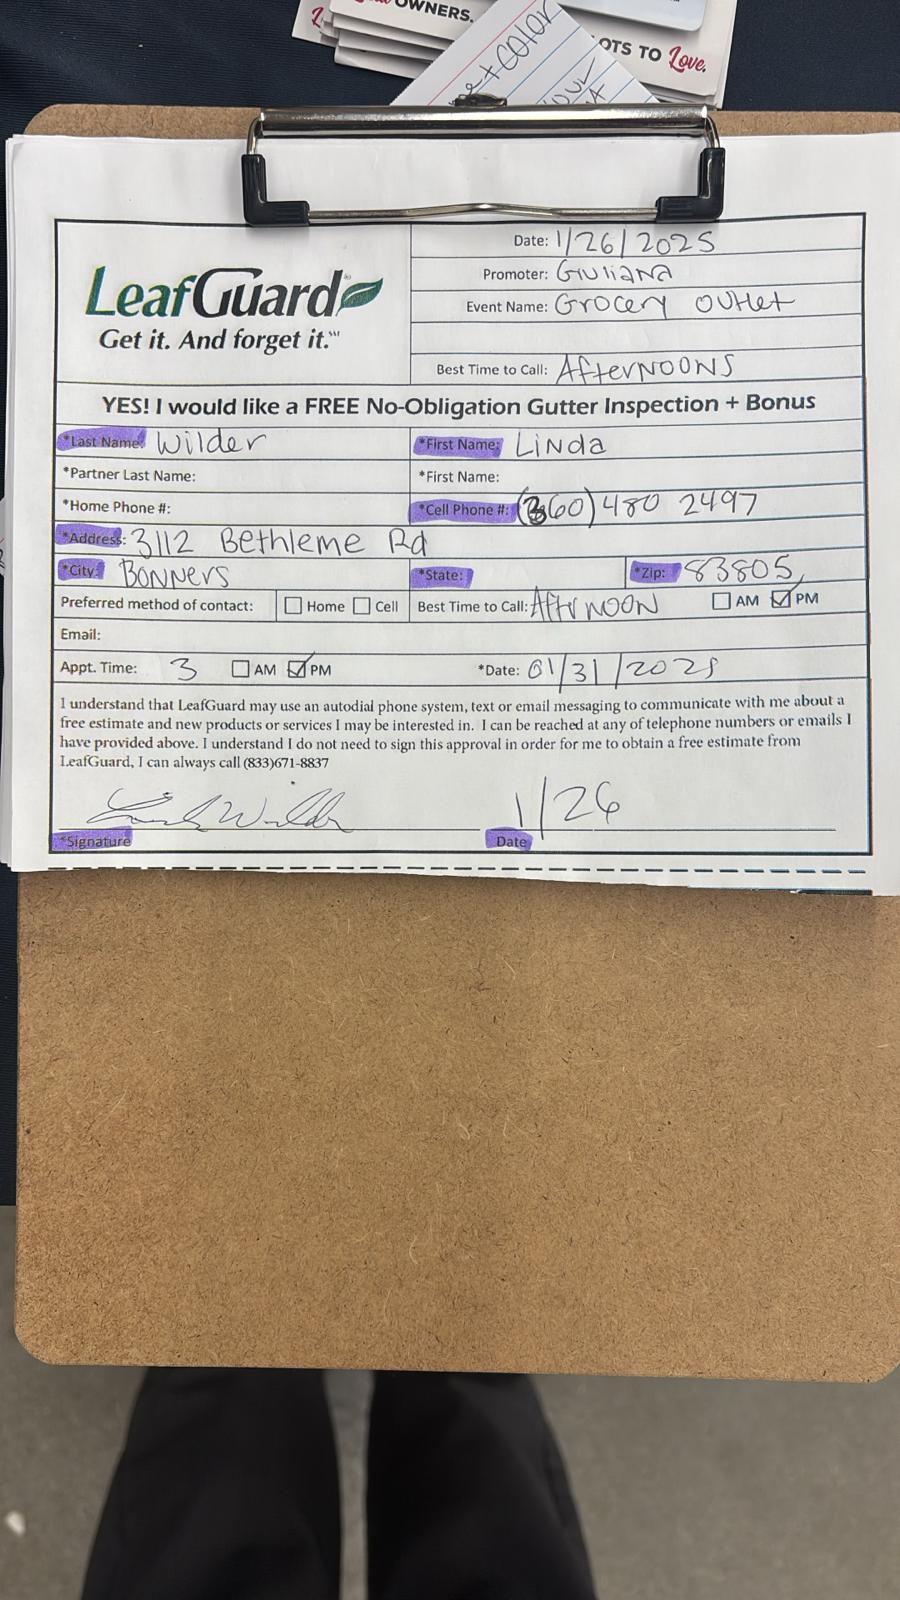 OWNERS.
OTS TO Love.
+ COLOR
LeafGuard
Get it. And forget it.℠
Date: 1/26/2025
Promoter: Giuliana
Event Name: Grocery Outlet
Best Time to Call: AfterNOONS
YES! I would like a FREE No-Obligation Gutter Inspection + Bonus
*Last Name: Wilder *First Name: Linda
*Partner Last Name: *First Name:
*Home Phone #: *Cell Phone #: (360) 480 2497
*Address: 3112 Bethleme Rd
*City: BONNERS *State: *Zip: 83805
Preferred method of contact: Home Cell Best Time to Call: AfterNOON AM PM
Email:
Appt. Time: 3 AM PM *Date: 01/31/2025
I understand that LeafGuard may use an autodial phone system, text or email messaging to communicate with me about a
free estimate and new products or services I may be interested in. I can be reached at any of telephone numbers or emails I
have provided above. I understand I do not need to sign this approval in order for me to obtain a free estimate from
LeafGuard, I can always call (833)671-8837
Linda Wilder 1/26
*Signature Date